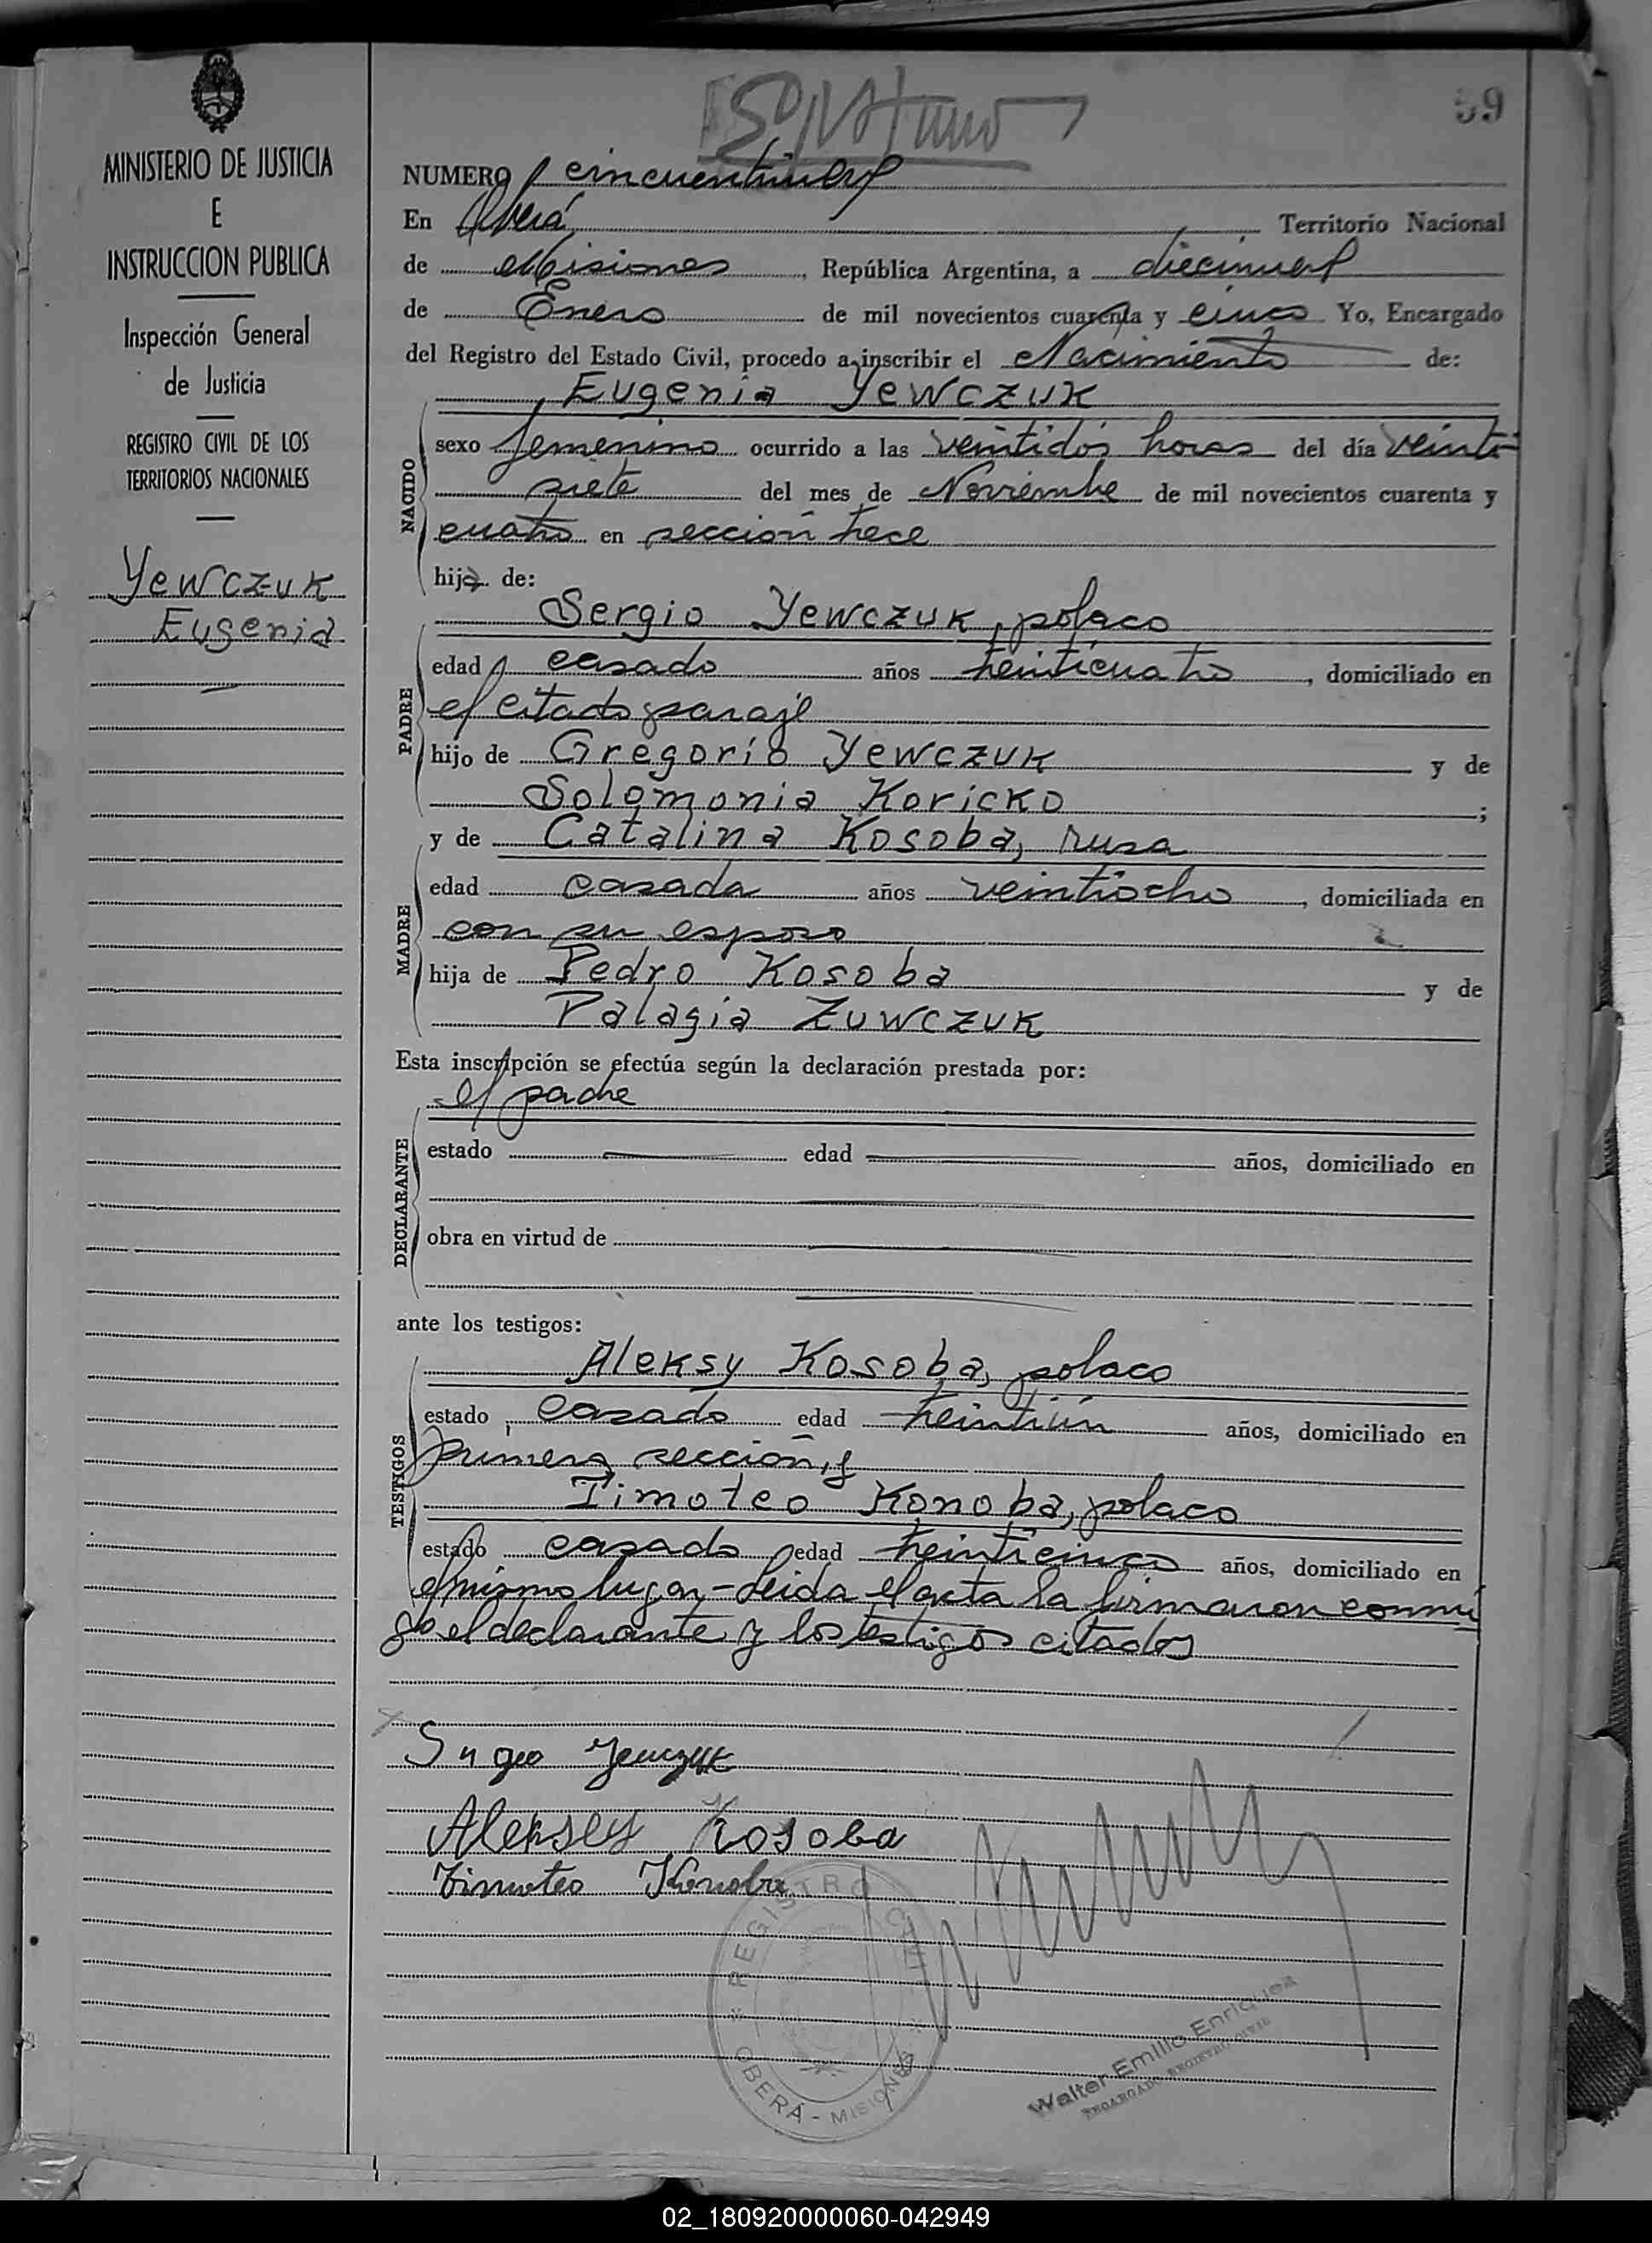 59
MINISTERIO DE JUSTICIA
E
INSTRUCCION PUBLICA
Inspección General
de Justicia
REGISTRO CIVIL DE LOS
TERRITORIOS NACIONALES
Yewczuk
Eugenia
NUMERO cincuentinueve
En Oberá Territorio Nacional
de Misiones, República Argentina, a diecinueve
de Enero de mil novecientos cuarenta y cinco Yo, Encargado
del Registro del Estado Civil, procedo a inscribir el Nacimiento de:
Eugenia Yewczuk
NACIDO
sexo femenino ocurrido a las veintidós horas del día veinti
siete del mes de Noviembre de mil novecientos cuarenta y
cuatro en sección trece
hija de:
PADRE
Sergio Yewczuk, polaco
edad casado años treinticuatro, domiciliado en
el citado paraje
hijo de Gregorio Yewczuk y de
Solomonia Koricko;
y de Catalina Kosoba, rusa
MADRE
edad casada años veintiocho, domiciliada en
con su esposo
hija de Pedro Kosoba y de
Palagia Zuwczuk
Esta inscripción se efectúa según la declaración prestada por:
el padre
DECLARANTE
estado edad años, domiciliado en
obra en virtud de
ante los testigos:
TESTIGOS
Aleksy Kosoba, polaco
estado casado edad treintiún años, domiciliado en
primera sección, y
Timoteo Konoba, polaco
estado casado edad treinticinco años, domiciliado en
el mismo lugar - Leida el acta la firmaron conmi
go el declarante y los testigos citados
Aleksey Kosoba
Timoteo Konoba
REGISTRO CIVIL
OBERÁ - MISIONES
Walter Emilio Enriquez
ENCARGADO REGISTRO CIVIL
02_180920000060-042949